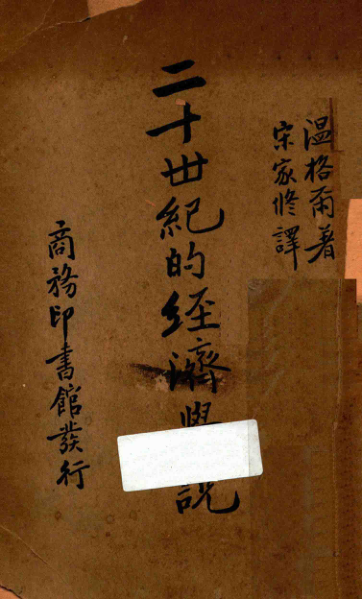 温格爾著
宋家修譯
二十世紀的経濟學說
商務印書館發行